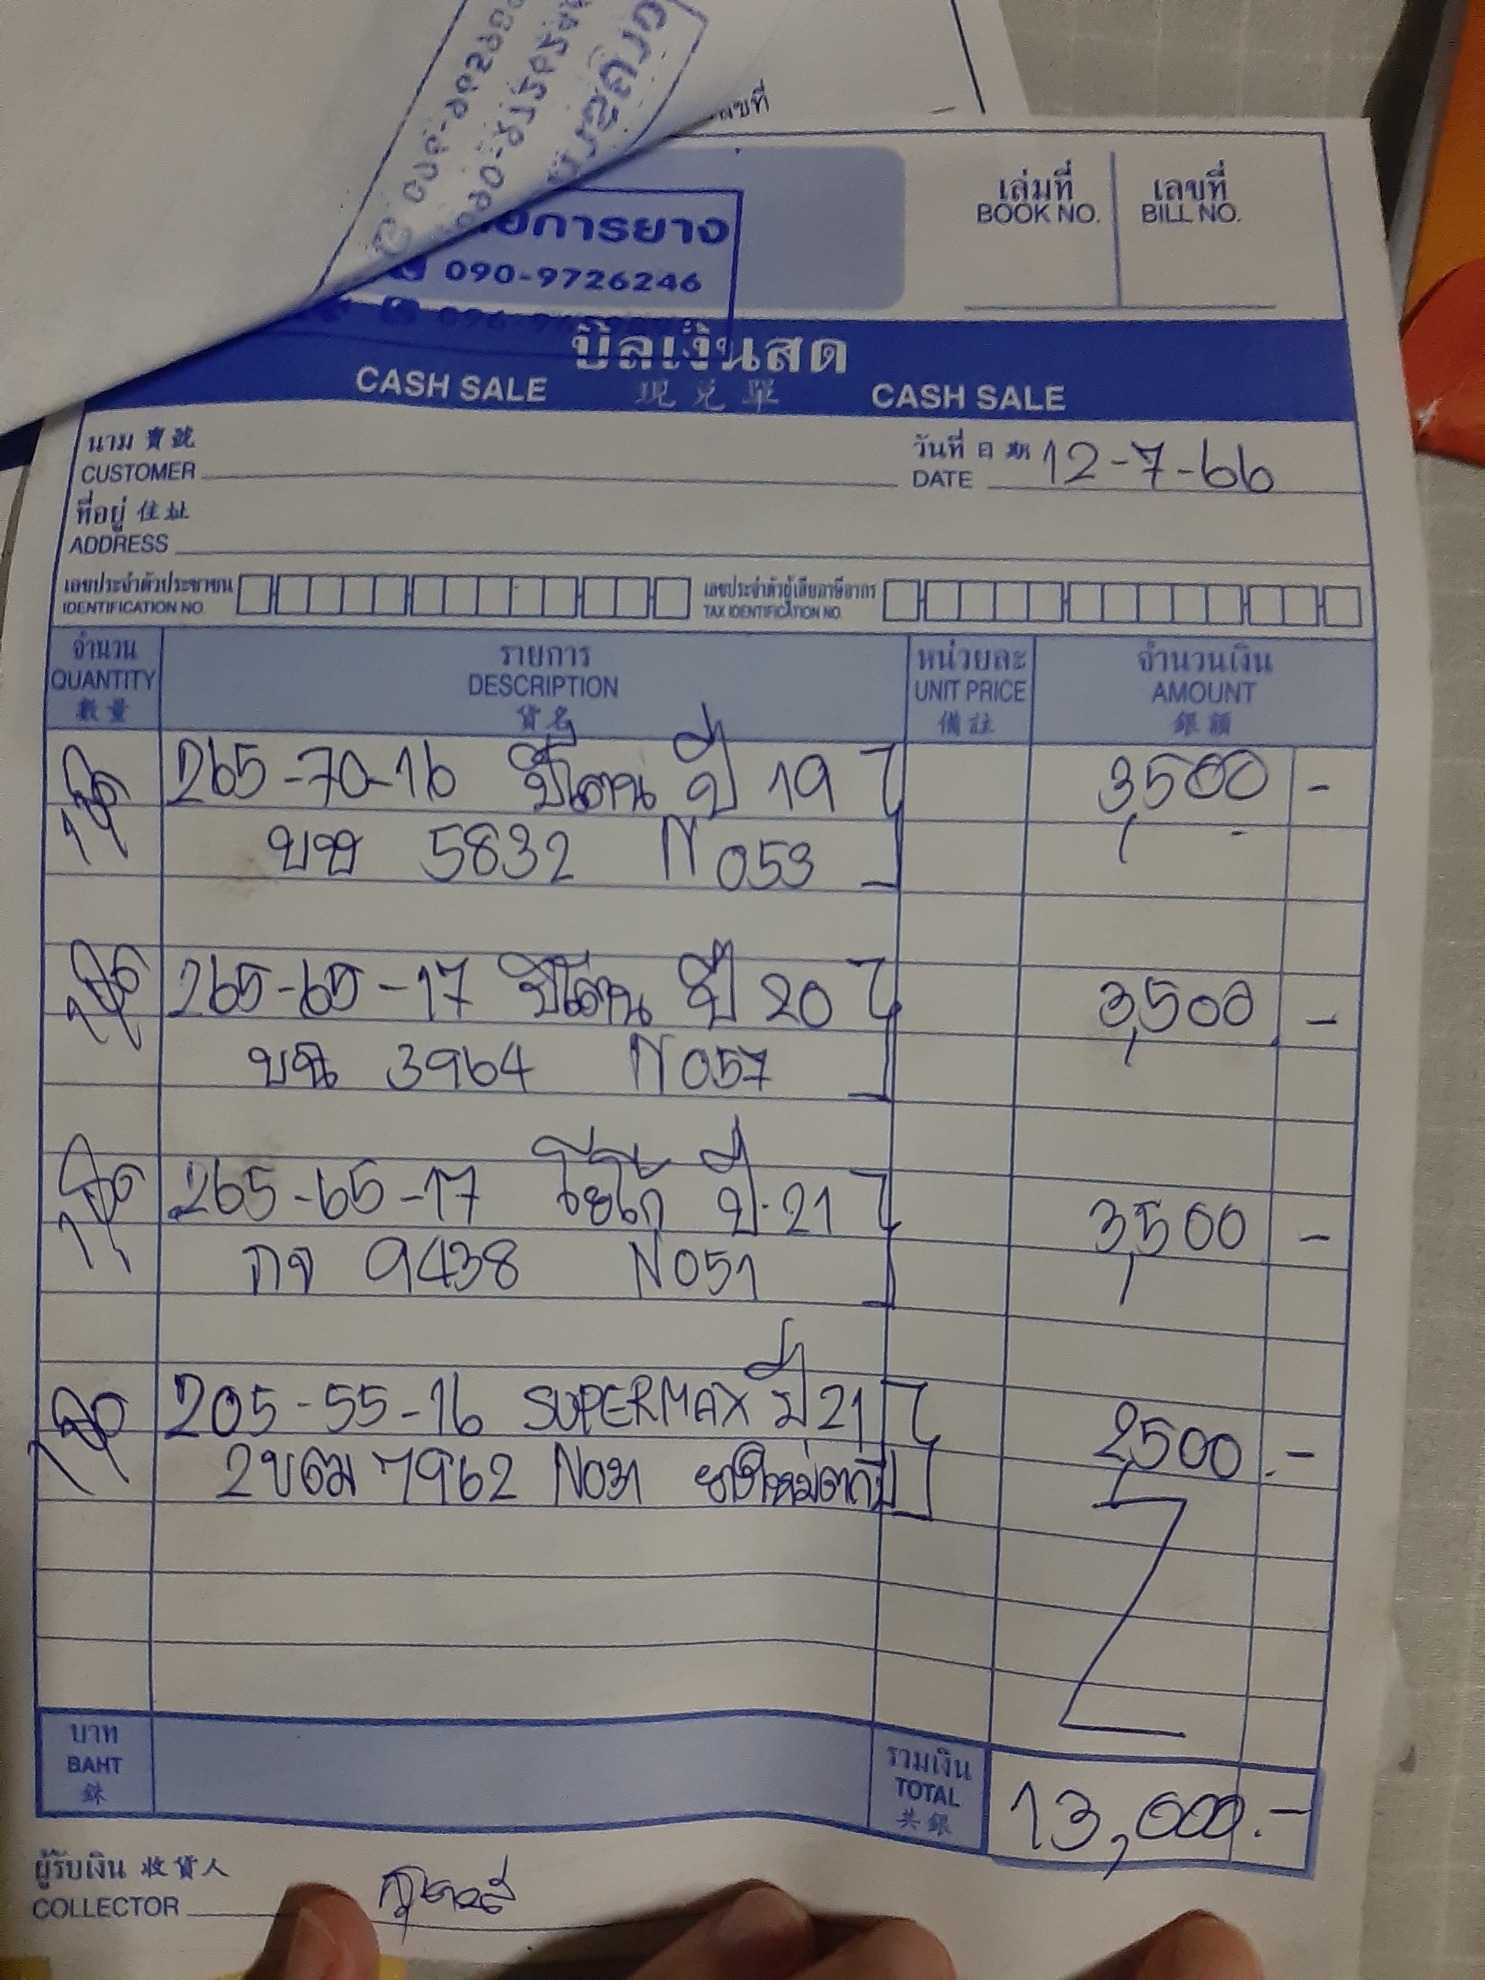 เลขที่
เล่มที่ เลขที่
BOOK NO. BILL NO.
การยาง
090-9726246
บิลเงินสด
CASH SALE 現兌單 CASH SALE
นาม 寶號 วันที่ 日期 12-7-66
CUSTOMER DATE
ที่อยู่ 住址
ADDRESS
เลขประจำตัวประชาชน เลขประจำตัวผู้เสียภาษีอากร
IDENTIFICATION NO. TAX IDENTIFICATION NO.
จำนวน รายการ หน่วยละ จำนวนเงิน
QUANTITY DESCRIPTION UNIT PRICE AMOUNT
數量 貨名 備註 銀額
265-70-16 ปี 19 3,500 -
5832 N053
265-65-17 ปี 20 3,500 -
3964 N057
265-65-17 โยโก ปี 21 3,500 -
กจ 9438 N051
205-55-16 SUPERMAX ปี 21 2,500.-
2ขฒ 7962 N031
บาท รวมเงิน
BAHT TOTAL 13,000.-
銖 共銀
ผู้รับเงิน 收貨人
COLLECTOR